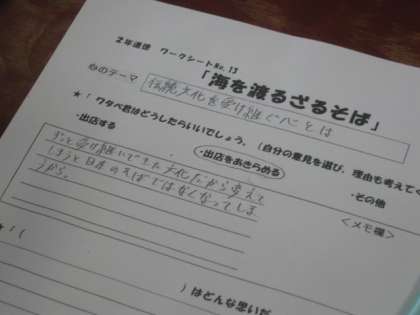 2年道徳 ワークシートNo.13
「海を渡るざるそば」
心のテーマ 伝統文化を受け継ぐ心とは
★「ワタベ君はどうしたらいいでしょう。(自分の意見を選び、理由も考えてく
・出店する ・出店をあきらめる ・その他
ずっと受け継いできた文化だから変えて
しまうと日本のそばではなくなってしま
うから。
<メモ欄>
★「(
)はどんな思いだ